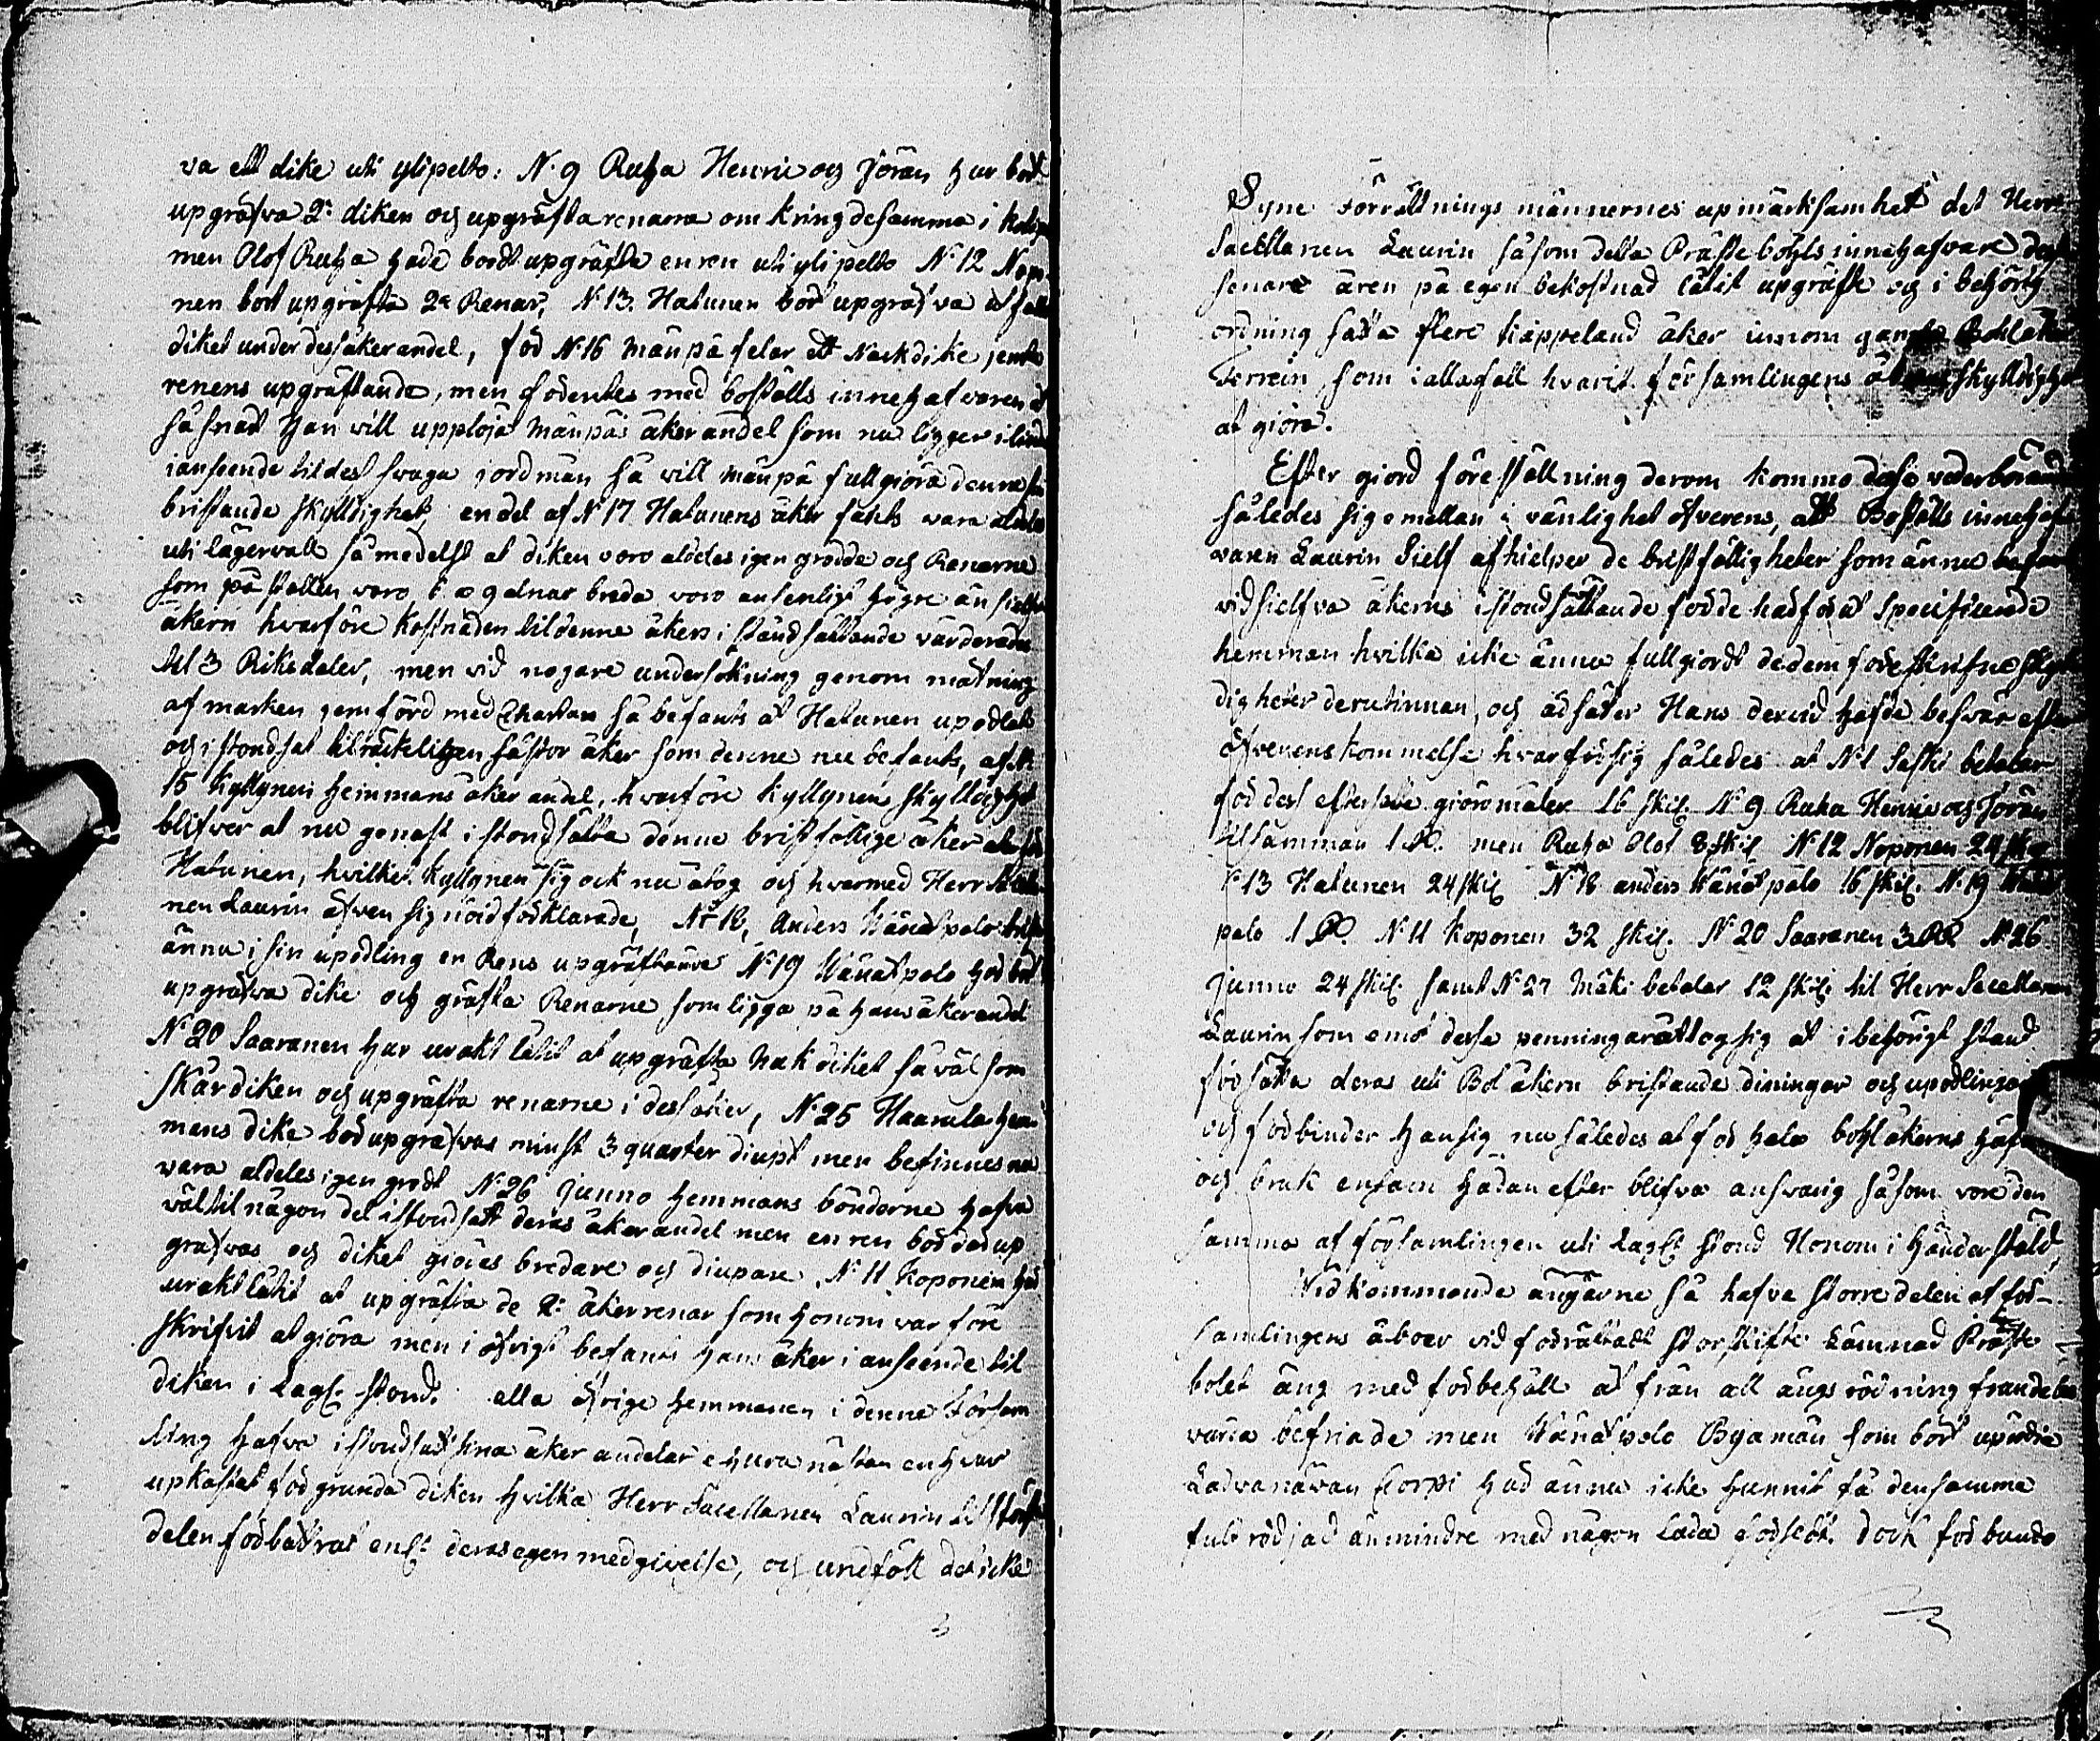 va ett dike uti ylipelto: N. 9 Ruha Henric och Jöran har bort
upgräfva 2:e diken och upgräfta renarna omkring desamma i
men Olof Ruha hade bordt upgräfta en ren uti ylipelto N. 12 Nopo-
nen bort upgräfta 2:e Renar, N. 13. Hatunen bör upgräfva utfalls
diket under dess åker andel, för N. 16 Mäupä felar ett Nackdike jemte
renens upgräftande, men förentes med boställs innehafvaren at
så snart han will upplöja Mäupäs åker andel som nu ligger i linda
i anseende til dess svaga jordmån så will Mäupä fullgiöra denna sin
bristande skylldighet, en del af N. 17 Hatunens åker fants vara aldeles
uti lägervall så medelst at diken voro aldeles igen grodde och Renarne
som på ställen voro 6 a 9 alnar breda voro ansenligt högre än sielfva
åkern hvarföre kostnaden til denne åkers i ståndsättande värderades
til 3 Riksdaler, men vid nogare undersökning genom mätning
af marken jemförd med Chartan så befants at Hatunen upodlat
och i stondsat tilräckeligen så stor åker som denne nu befants, af N.
15 Kyllynen hemmans åker andel, hvarföre Kyllynens skylldighet
blifver at nu genast i stondsätta denne bristfällige åker
Hatunen, hvilket Kyllynen sig ock nu åtog och hvarmed Herr Sacella-
nen Laurin äfven sig nöid förklarade, N:r 18, Anders Wänätpalo
ännu i sin upodling en Rens upgräftande N. 19 Wänätpalo har bort
upgräfva dike och gräfta Renarne som ligga på hans åker andel
N. 20 Saaranen har urakt låtit at upgräfta Nak diket så väl som
skärdiken och upgräfta renarne i dess åker, N. 25 Haarala hem-
mans dike bör upgräfvas minst 3 quarter diupt men befinnes nu
vara aldeles igen grodt N. 26 Junno Hemmans bönderne hafva
väl til någon del i stondsatt deras åker andel men en ren bör der up
gräfvas och diket giöras bredare och diupare N. 11 Koponen har
uraktlåtit at upgräfta de 2:e åkerrenar som honom var före
skrifvit at giöra men i öfrigt befants hans åker i anseende til
diken i Lagl. stond. alla öfrige hemmanen i denne Försam
ling hafva i stondsatt sina åker andelar ehuru nästan en hvar
upkastat för grunda diken hvilka Herr Sacellanen Laurin til störste
delen förbättrat enl: deras egen medgivelse, och undföll det icke
Syne Förrättnings männernes upmärksamhet det Herr
Sacellanen Laurin såsom detta Prästebohls innehafvare de
senare åren på egen bekostnad låtit upgräfta och i behörig
ordning satta flere kappeland åker innom gamla Bohlåker
Terrein, som i allafall hvarit församlingens skylldighet
at giöra.
Efter giord föreställning derom kommo desse vederbörande
således sig emellan i vänlighet öfverens, att Boställs innehaf-
varen Laurin Sielf afhielper de bristfälligheter som ännu
vid sielfva åkerns i stondsättande för de härförut Specificerade
hemman hvilka icke ännu fullgiordt de dem föreskrifne skyl-
digheter derutinnan, och ersätter Hans dervid hafde besvär efter
öfverenskommelse hvarför sig således at N. 1 Saski betaler
för dess eftersatte giöromåler 16 skil. N. 9 Ruha Henric och Jöran
tilsamman 1 R. men Ruha Olof 8 skil. N. 12 Noponen 24 skil.
N. 13 Hatunen 24 skil. N. 18 anders Wänätpalo 16 skil. N. 19 Wänät
palo 1 R. N. 11 Koponen 32 skil. N. 20 Saaranen 3 RR N. 26
Junno 24 skil. samt N. 27 Mäki betaler 12 skil. til Herr Sacellanen
Laurin som emot desse penningar åttog sig at i behörigt stand
försätta deras uti Bol åkern bristande dikningar och upodlingar
och förbinder han sig nu således at för hela bohl åkerns häfd
och bruk ensam hädan efter blifva answarig såsom vore den
samma af församlingen uti Lagl: stond Honom i händer stäld,
Vidkommande ängarne så hafva störredelen af för-
samlingens åboer vid förrättadt Storskifte Lämnad Präste
bolet äng med förbehåll at från all ängs rödning framdeles
varia befriade men Wänätpalo Byamän som bort updia
Ladvanävan Corpi har ännu icke hunnit få densamma
fult rödjad än mindre med någon Lada försedt. Dock förbundo